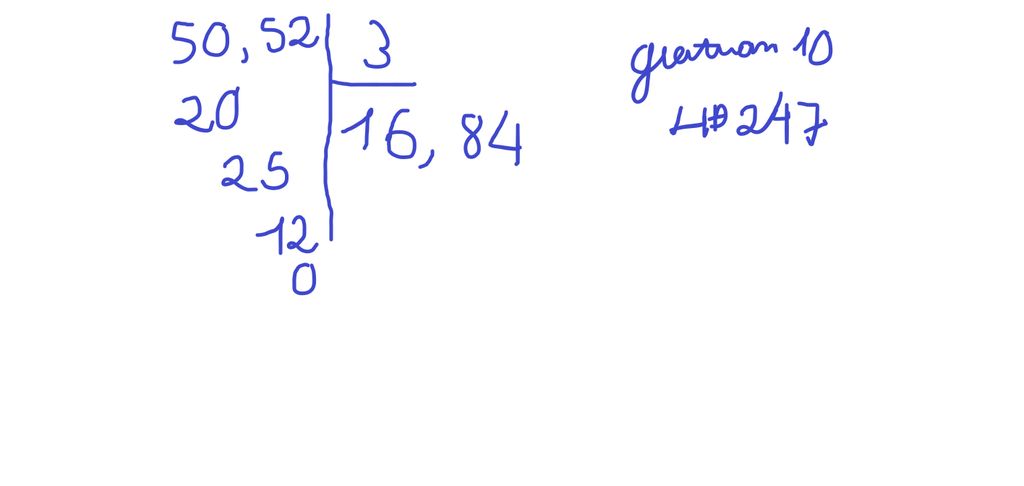 50,52 3
20 16,84
25
12
0
question 10
4#247